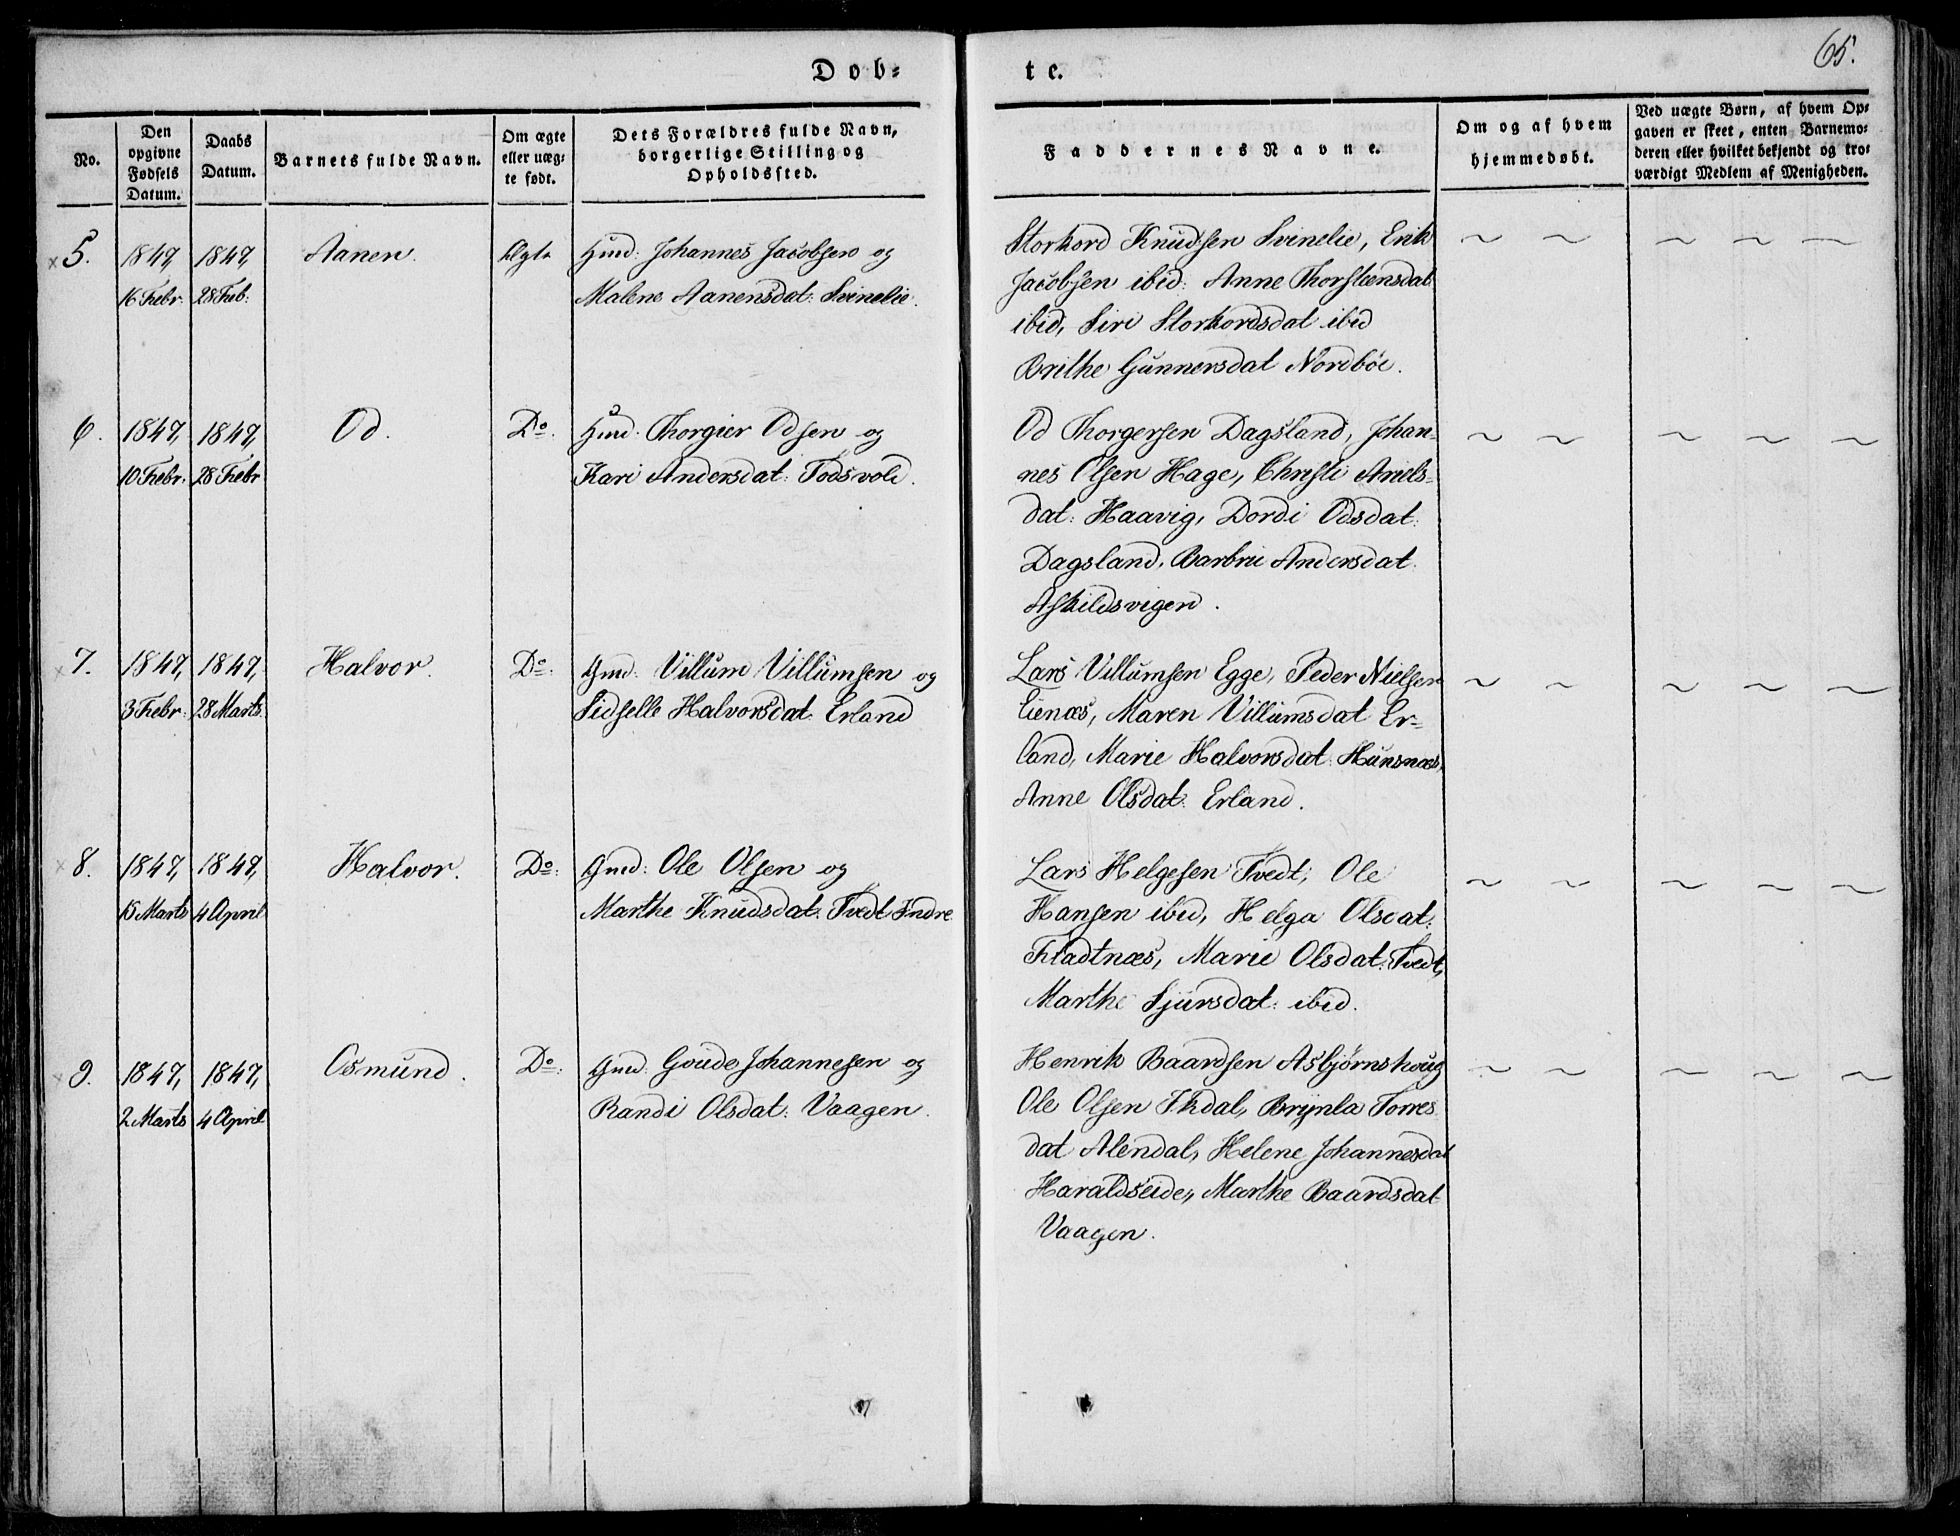 65.
Døb-
te.
No.
Den
opgivne
Fødsels
Datum.
Daabs
Datum.
Barnets fulde Navn.
Om ægte
eller uæg-
te født.
Dets Forældres fulde Navn,
borgerlige Stilling og
Opholdssted.
Faddernes Navne.
Om og af hvem
hjemmedøbt.
Ved uægte Børn, af hvem Op-
gaven er skeet, enten Barnemo-
deren eller hvilket bekjendt og tro-
værdigt Medlem af Menigheden.
5.
1847,
16 Febr:
1847,
28 Feb:
Aanen.
Ægte
Gmd: Johannes Jacobsen og
Malene Aanensdat: Svinelie.
Storkord Knudsen Svinelie, Erik
Jacobsen ibid: Anne Thorsteensdat
ibid, Siri Storkordsdat ibid
Brithe Gunnersdat Nordbøe.
6.
1847,
10 Febr:
1847,
28 Febr
Od.
Do:
Hmd: Thorgier Odsen og
Kari Andersdat: Todsvold.
Od Thorgersen Dagsland, Johan-
nes Olsen Hage, Christi Ariels-
dat: Haavig, Dordi Odsdat:
Dagsland, Barbru Andersdat.
Askildsvigen.
7.
1847,
3 Febr:
1847,
28 Marts
Halvor.
Do:
Gmd: Villum Villumsen og
Sidselle Halvorsdat: Erland
Lars Villumsen Egge, Peder Nielsen
Lienæs, Maren Villumsdat Er-
land, Marie Halvorsdat: Hunsnæs,
Anne Olsdat: Erland.
8.
1847,
15 Marts
1847,
4 April
Halvor.
Do:
Gmd: Ole Olsen og
Marthe Knudsdat: Tvedt Indre
Lars Helgesen Tvedt, Ole
Hansen ibid, Helga Olsdat:
Fladtnæs, Marie Olsdat: Tvedt,
Marthe Sjursdat: ibid.
9.
1847,
2 Marts
1847,
4 April
Osmund.
Do:
Gmd: Goude Johannesen og
Randi Olsdat: Vaagen.
Henrik Baardsen Asbjørnshoug
Ole Olsen Ikdal, Brynla Torres
dat Alendal, Helene Johannesdat
Haraldseide, Marthe Baardsdat
Vaagen.